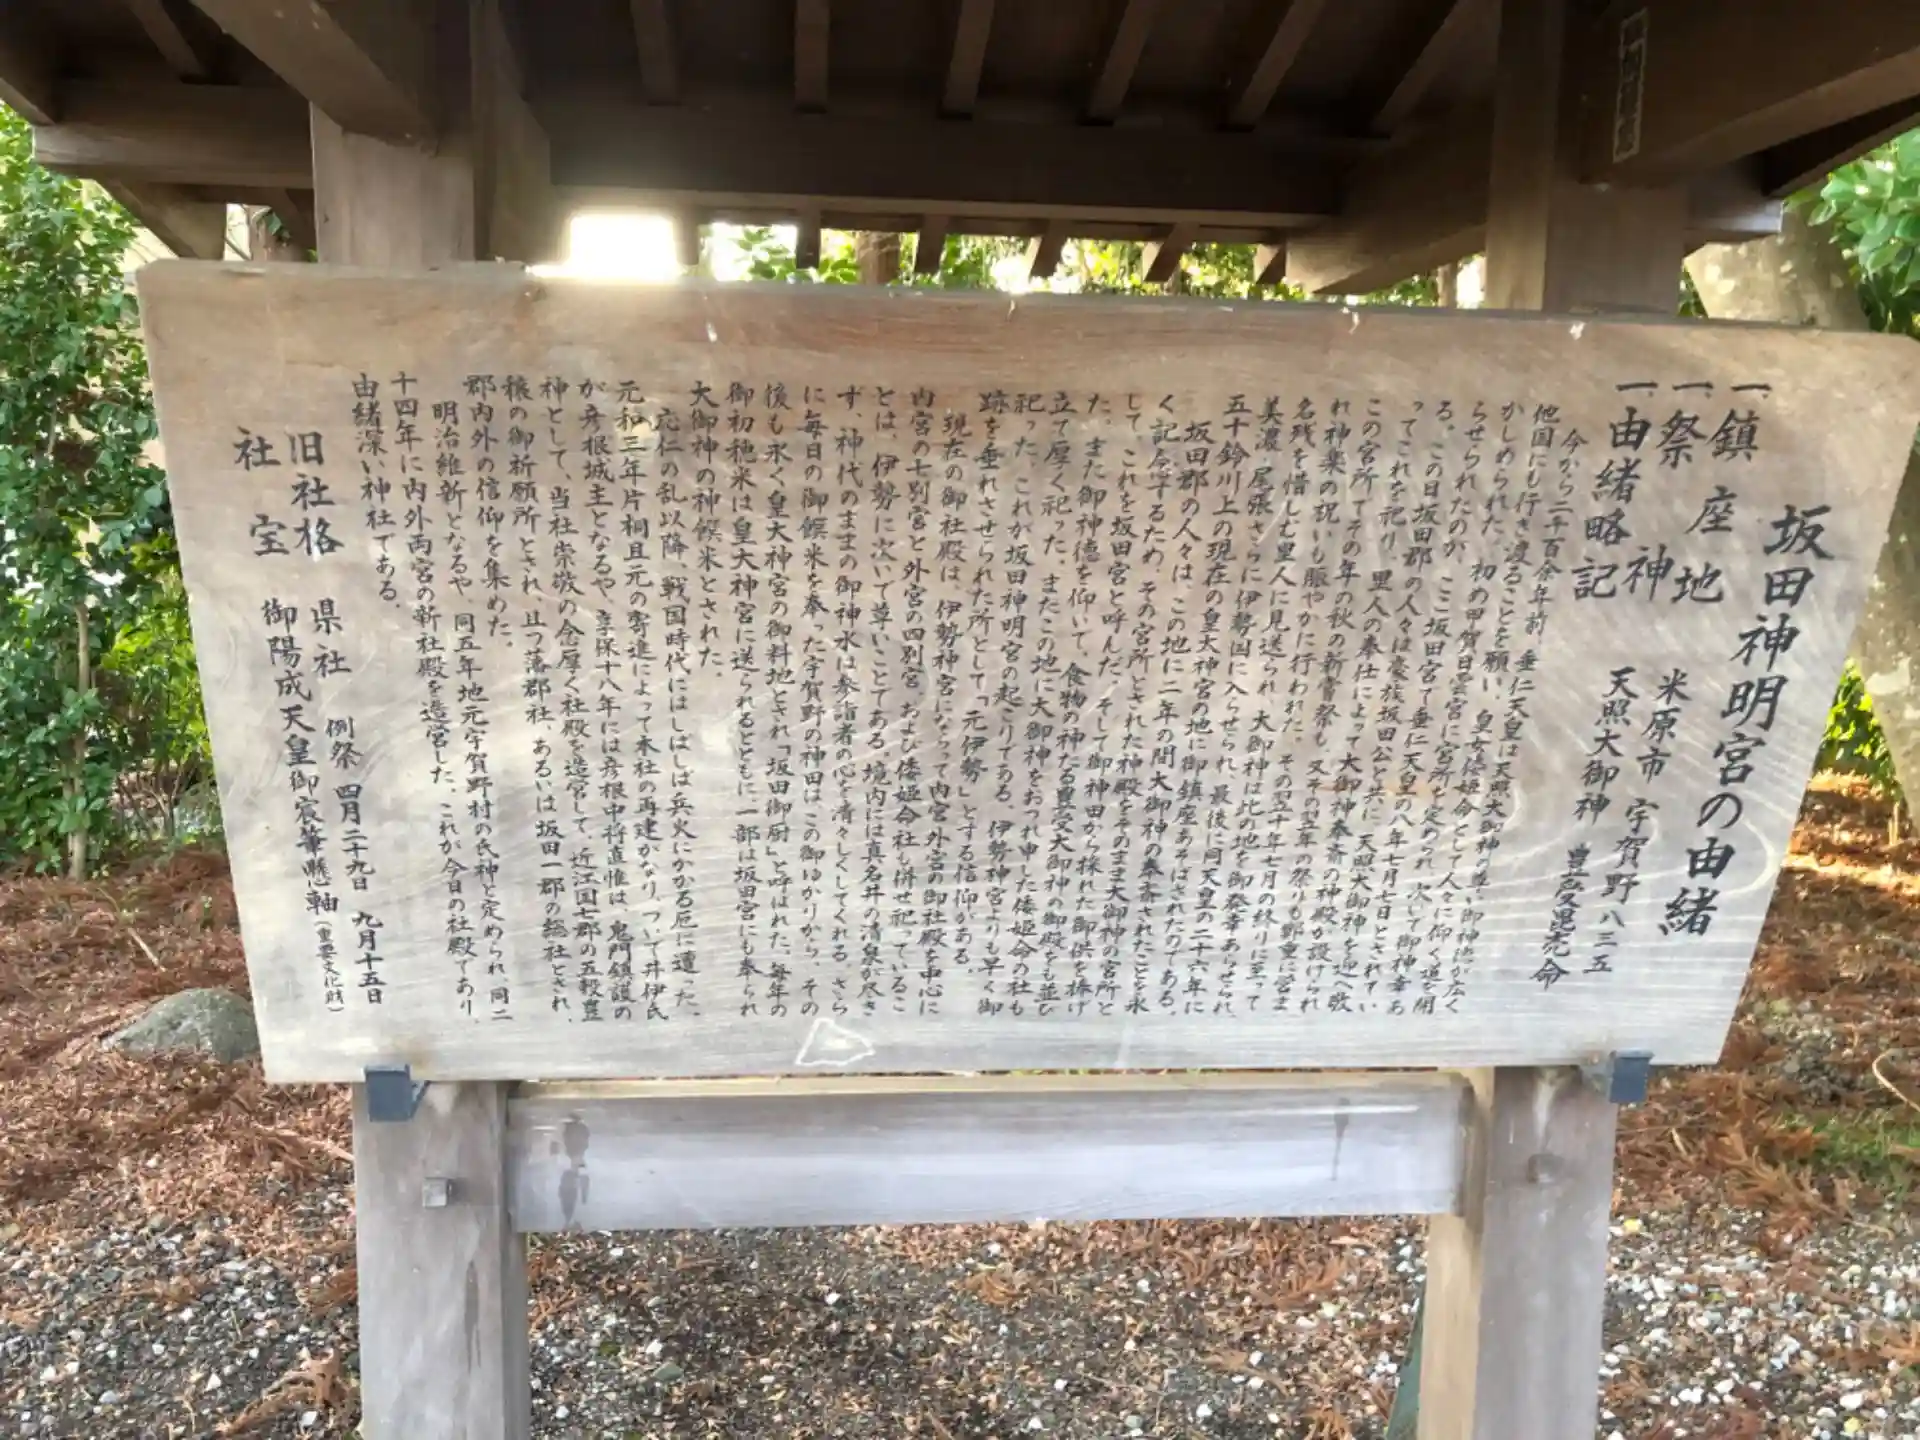 坂田神明宮の由緒
一、鎮座地 米原市 宇賀野八三五
一、祭神 天照大御神 豊受毘売命
一、由緒略記
今から二千百余年前、垂仁天皇は天照大御神の尊い御神徳が広く
他国にも行き渡ることを願い、皇女倭姫命として人々に仰ぐ道を開
かしめられた。初め甲賀日雲宮に宮所を定められ、次して御神幸あ
らせられたのが、ここ坂田宮で垂仁天皇の八年七月七日とされてい
る。この日坂田郡の人々は豪族坂田公と共に、天照大御神を迎へ敬
ってこれを祀り、里人の奉仕によって大御神奉斎の神殿が設けられ
この宮所でその年の秋の新嘗祭も、又その翌年の祭りも鄭重に営ま
れ神楽の祝いも賑やかに行われた。その翌十年七月の終りに至って
名残を惜しむ里人に見送られ、大御神は此の地を御発幸あらせられ、
美濃、尾張さらに伊勢国に入らせられ、最後に同天皇の二十六年に
五十鈴川上の現在の皇大神宮の地に御鎮座あそばされたのである。
坂田郡の人々は、この地に二年の間大御神の奉斎されたことを永
く記念するため、その宮所とされた神殿をそのまま大御神の宮所と
して、これを坂田宮と呼んだ。そして御神田から採れた御供を捧げ
た。また御神徳を仰いで、食物の神たる豊受大御神の御殿をも並び
立て厚く祀った。またこの地に大御神をおつれ申した倭姫命の社も
祀った。これが坂田神明宮の起こりである。伊勢神宮よりも早く御
跡を垂れさせられた所として「元伊勢」とする信仰がある。
現在の御社殿は、伊勢神宮にならって内宮外宮の御社殿を中心に
内宮の七別宮と外宮の四別宮、および倭姫命社も併せ祀っているこ
とは、伊勢に次いで尊いことである。境内には真名井の清泉が尽き
ず、神代のままの御神水は参詣者の心を清々しくしてくれる。さら
に毎日の御饌米を奉った宇賀野の神田はこの御ゆかりから、その
後も永く皇大神宮の御料地とされ「坂田御厨」と呼ばれた。毎年の
御初穂米は皇大神宮に送られるとともに一部は坂田宮にも奉られ
大御神の神饌米とされた。
応仁の乱以降、戦国時代にはしばしば兵火にかかる厄に遭った。
元和三年片桐且元の寄進によって本社の再建がなり、ついで井伊氏
が彦根城主となるや、享保十八年には彦根中将直惟は、鬼門鎮護の
神として、当社崇敬の念厚く社殿を造営して、近江国七郡の五穀豊
穣の御祈願所とされ、且つ藩郡社、あるいは坂田一郡の総社とされ、
郡内外の信仰を集めた。
明治維新となるや、同五年地元宇賀野村の氏神と定められ、同二
十四年に内外両宮の新社殿を造営した。これが今日の社殿であり、
由緒深い神社である。
旧社格 県社 例祭 四月二十九日 九月十五日
社宝 御陽成天皇御宸筆懸軸(重要文化財)